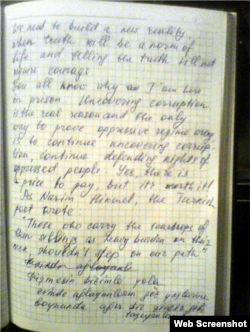 We need to build a new reality,
where truth will be a norm of
life and telling the truth will not
require courage.
You all know why am I am here
in prison. Uncovering corruption
is the real reason and the only
way to prove oppressive regime wrong
is to continue uncovering corrup-
tion, continue defending rights of
oppressed people. Yes, there is
a price to pay, but it's worth it!
As Nazim Hikmet, the Turkish
poet wrote
"Those who carry the teardrops of
their as heavy burden on their
neck, shouldn't step on our path"
Bizimsin bizimlə yola
evində ağlayanların göz yaşlarını
boynunda ağır bir
Web Screenshot